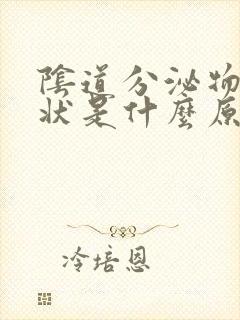 陰道分泌物
狀是什麼原
冷培恩